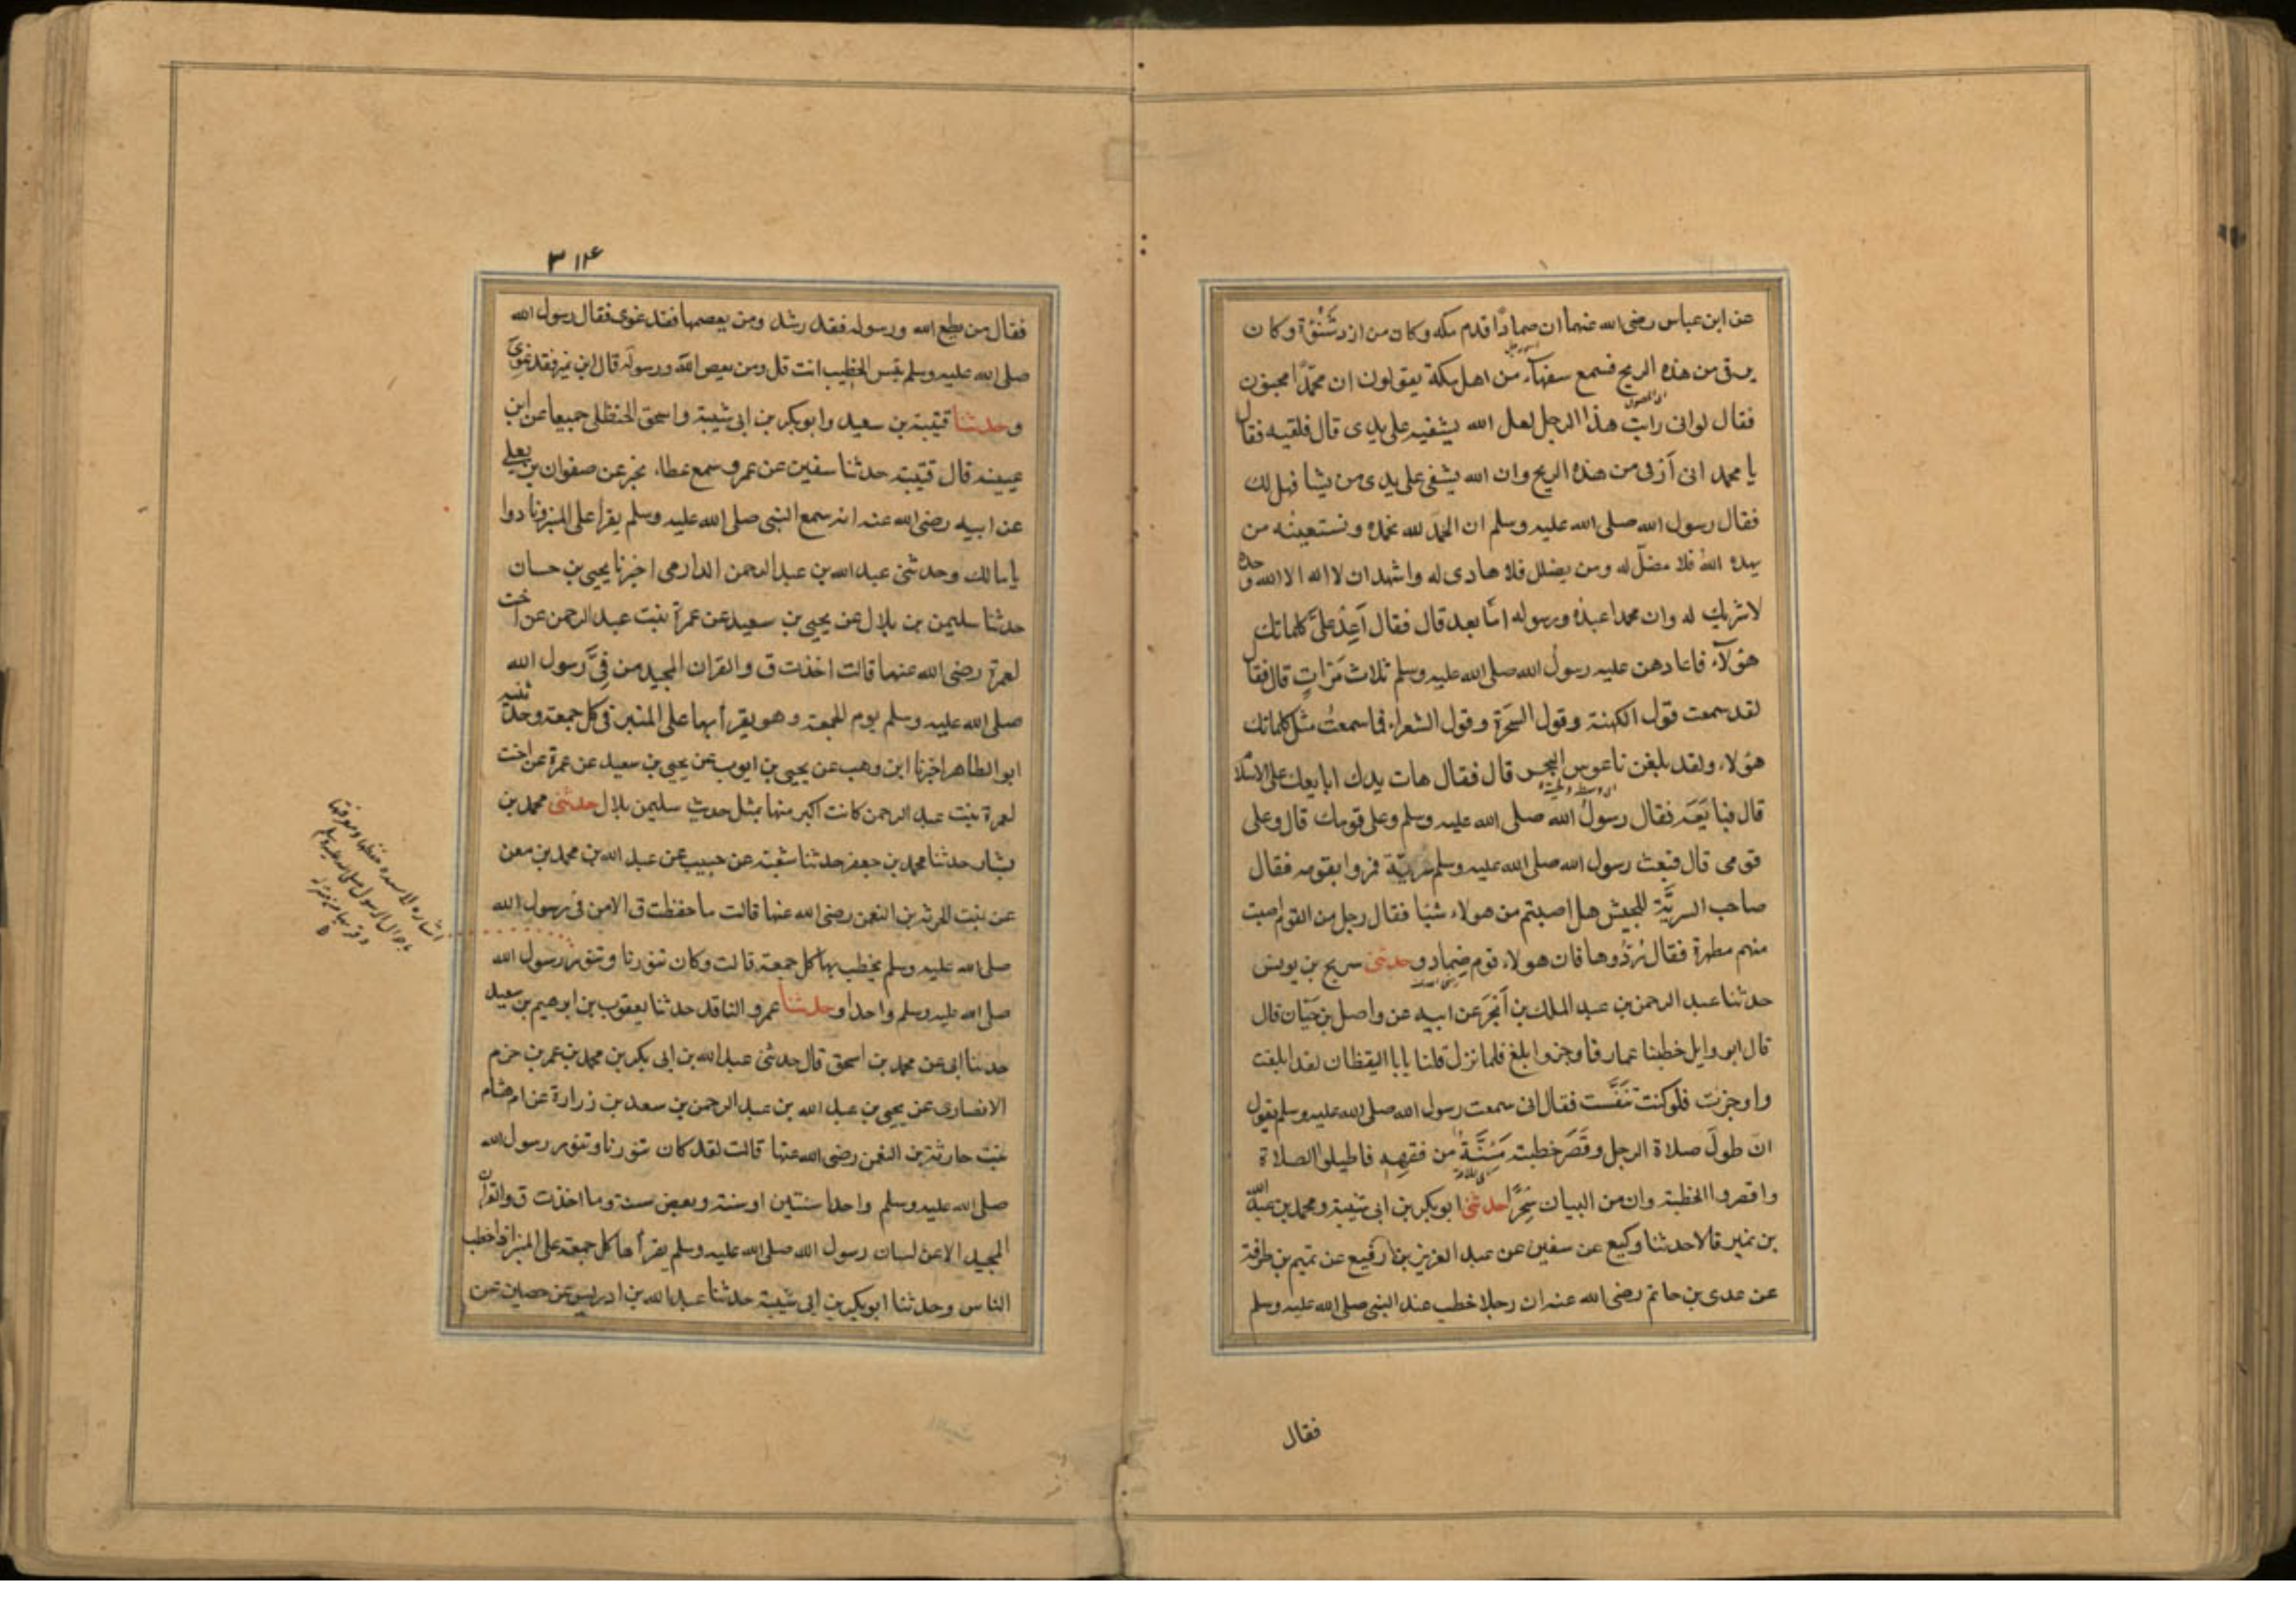 عن ابن عباس رضى الله عنهما ان ضمادًا قدم مكه وكان من ازد شَنُؤة وكان
يرقى من هذه الريح فسمع سفهآء من اهل مكة يقولون ان محمّدًا مجنون
فقال لوانى رايت هذا الرجل لعل الله يشفيه على يدى قال فلقيه فقال
يا محمد انى آرقى من هذه الريح وان الله يشفى على يدى من يشا فهل لك
فقال رسول الله صلى الله عليه وسلم ان الحمد لله نحمده ونستعينه من
يهده اللهُ فلا مضلّ له ومن يضلل فلا هادى له واشهد ان لا اله الا الله وحده
لا شريك له وان محمدا عبده ورسوله امّا بعد قال فقال اَعِدْ علىَّ كلماتك
هؤلآء فاعادهن عليه رسول الله صلى الله عليه وسلم ثلاث مَرّاتٍ قال فقال
لقد سمعت قول الكهنة وقول السَحَرة وقول الشعراء فما سمعتُ مثل كلماتك
هؤلاء ولقد بلغن ناعوس البحر قال فقال هات يدك ابايعك على الاسلام
قال فبايَعَه فقال رسولُ الله صلى الله عليه وسلم وعلى قومك قال وعلى
قومى قال فبعث رسول الله صلى الله عليه وسلم سَرِيّة فمروا بقومه فقال
صاحب السريَّة للجيش هل اصبتم من هولاء شيًا فقال رجل من القوم اصبت
منهم مطهرة فقال رُدُّوها فان هولاء قوم ضِماد وحدثنى سريج بن يونس
حدثنا عبد الرحمن بن عبد الملك بن اَبْجَرَ عن ابيه عن واصل بن حَيّان قال
قال ابو وايل خطبنا عمار فاوجز وابلغ فلما نزل قلنا يابا اليقظان لقد ابلغت
واوجزت فلو كنت تنَفَّست فقال انى سمعت رسول الله صلى الله عليه وسلم يقول
انّ طولَ صلاة الرجل وقَصَر خطبته مَئِنَّةٌ من فقهِهِ فاطيلوا الصلاة
واقصروا الخطبة وان من البيان سِحْرًا حدثنى ابو بكر بن ابى شيبة ومحمد بن عبد الله
بن نمير قالا حدثنا وكيع عن سفين عن عبد العزيز بن رُفيع عن تميم بن طرفة
عن عدى بن حاتم رضى الله عنه ان رجلا خطب عند النبى صلى الله عليه وسلم
فقال
٣١٤
فقال من يطع الله ورسوله فقد رشد ومن يعصهما فقد غوى فقال رسول الله
صلى الله عليه وسلم بئس الخطيب انت قل ومن يعص الله ورسوله قال ابن نمير فقد غوِىَ
وحدثنا قتيبة بن سعيد وابو بكر بن ابى شيبة واسحق الحنظلى جميعا عن ابن
عيينه قال قتيبة حدثنا سفين عن عمرو سمع عطاء يخبر عن صفوان بن يعلى
عن ابيه رضى الله عنه انه سمع النبى صلى الله عليه وسلم يقرا على المنبر ونادوا
يا مالك وحدثنى عبد الله بن عبد الرحمن الدارمى اخبرنا يحيى بن حسان
حدثنا سليمن بن بلال عن يحيى بن سعيد عن عمرة بنت عبد الرحمن عن اخت
لعمرة رضى الله عنهما قالت اخذت ق والقران المجيد من فِىّ رسول الله
صلى الله عليه وسلم يوم الجمعة وهو يقرأ بها على المنبر فى كل جمعة وحدثنيه
ابو الطاهر اخبرنا ابن وهب عن يحيى بن ايوب عن يحيى بن سعيد عن عمرة عن اخت
لعمرة بنت عبد الرحمن كانت اكبر منها بمثل حديث سليمن بلال حدثنى محمد بن
بشار حدثنا محمد بن جعفر حدثنا شعبة عن حبيب عن عبد الله بن محمد بن معن
عن بنت الحرثه بن النعمن رضى الله عنها قالت ما حفظت ق الا من فى رسول الله
صلى الله عليه وسلم يخطب بها كل جمعة قالت وكان تنورنا وتنور رسول الله
صلى الله عليه وسلم واحدا وحدثنا عمرو الناقد حدثنا يعقوب بن ابرهيم بن سعيد
حدثنا ابى عن محمد بن اسحق قال حدثنى عبد الله بن ابى بكر بن محمد بن عمر بن حزم
الانصارى عن يحيى بن عبد الله بن عبد الرحمن بن سعد بن زرارة عن ام هشام
بنت حارثة بن النعمن رضى الله عنها قالت لقد كان تنورنا وتنور رسول الله
صلى الله عليه وسلم واحدا سنتين او سنة وبعض سنة وما اخذت ق والقرآن
المجيد الا عن لسان رسول الله صلى الله عليه وسلم يقرأها كل جمعة على المنبر اذا خطب
الناس وحدثنا ابو بكر بن ابى شيبة حدثنا عبد الله بن ادريس عن حصين عن